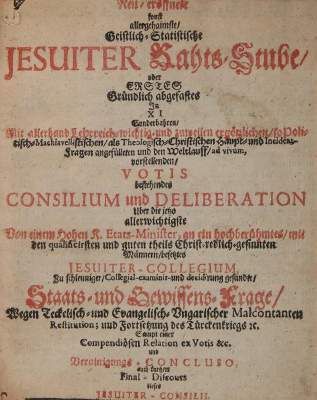 Neu-eröffnete
sonst
allergeheimste/
Geistlich-Statistische
JESUITER Rahts-Stube/
oder
ERSTES
Gründlich abgefastes
In
XI
Sonderbahren/
Mit allerhand Lehrreich-wichtig-und zuweilen ergötzlichen/so Poli-
tisch-Machiavellistischen/als Theologisch-Christlichen Haupt- und Incidenz-
Fragen angefülleten und den Weltlauff/ ad vivum,
vorstellenden/
VOTIS
bestehendes
CONSILIUM und DELIBERATION
Uber die jetzo
allerwichtigste
Von einem Hohen K. Etats-Minister, an ein hochberühmtes/mit
den qualificirsten und guten theils Christ-redlich-gesinnten
Männern/besetztes
JESUITER-COLLEGIUM,
Zu schleuniger/Collegial-examinir-und decidirung gesandte/
Staats-und Gewissens-Frage/
Wegen Teckelisch-und Evangelisch-Ungarischer Malcontanten
Restitution; und Fortsetzung des Türckenkriegs ꝛc.
Sampt einer
Compendiösen Relation ex Votis &c.
und
Vereinigungs-CONCLUSO,
auch kurtzen
Final-Discours
dieses
JESUITER-CONSILII.